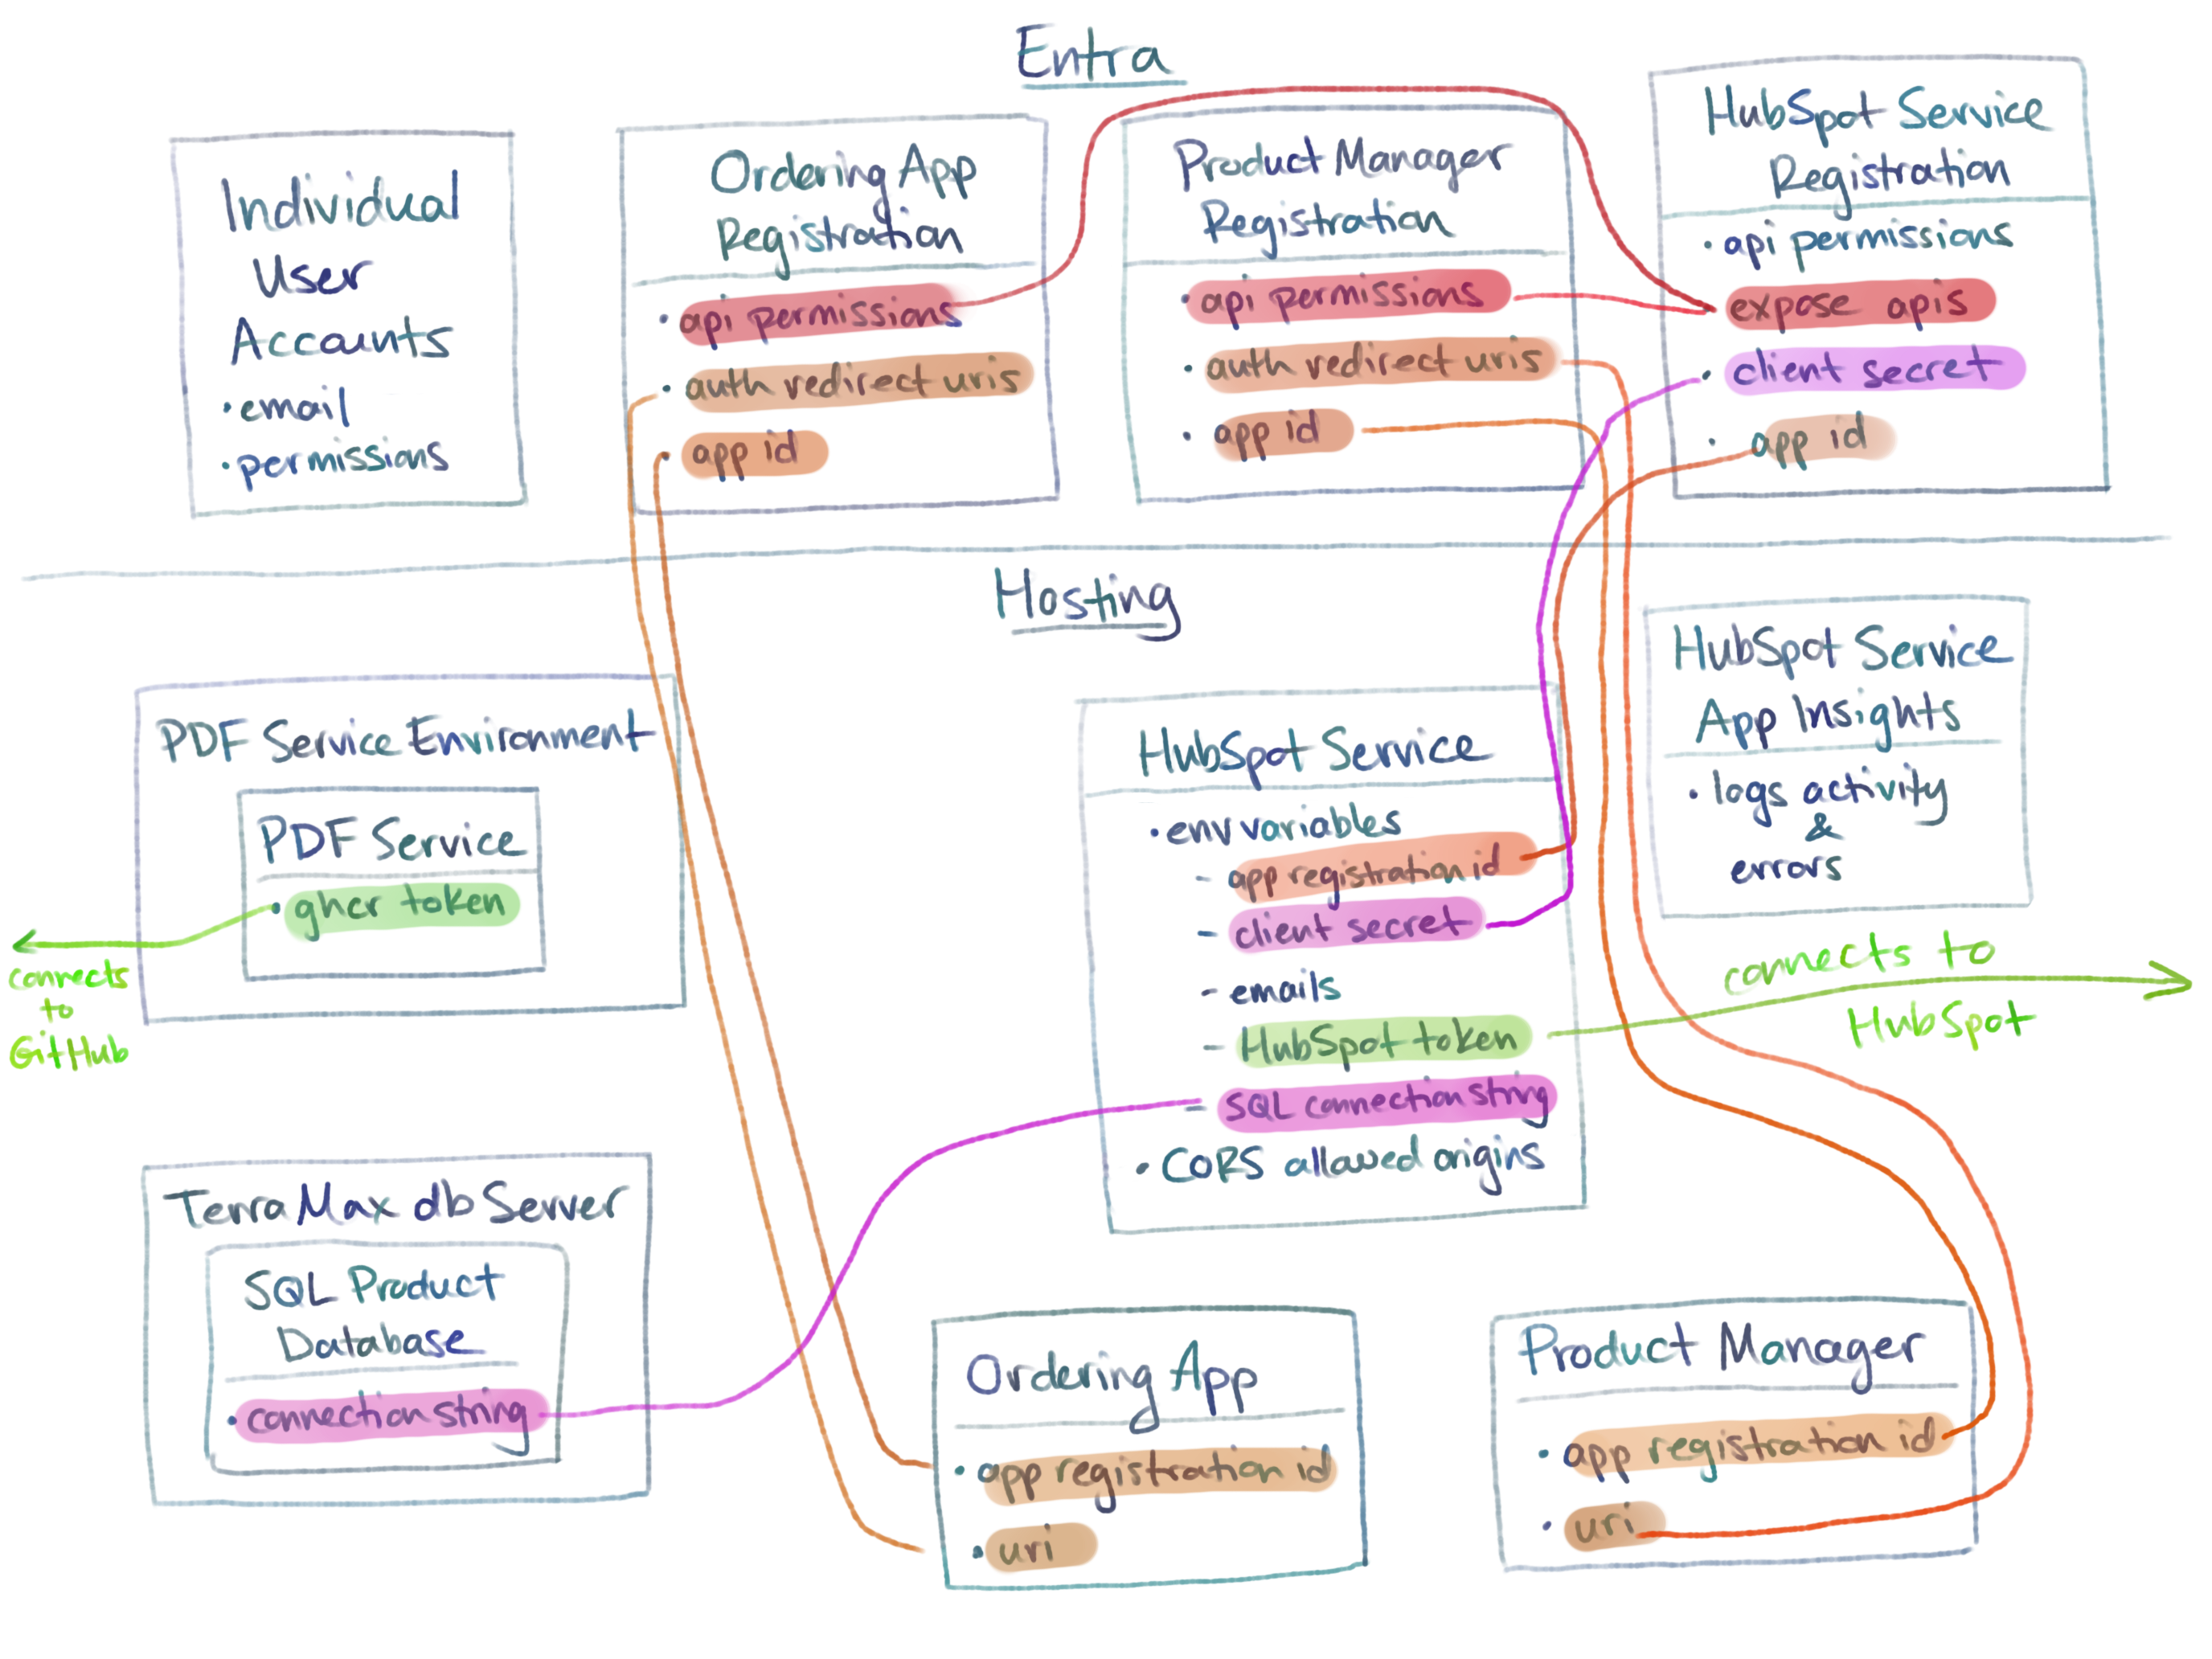 Entra
Individual
User
Accounts
• email
• permissions
Ordering App
Registration
• api permissions
• auth redirect uris
• app id
Product Manager
Registration
• api permissions
• auth redirect uris
• app id
HubSpot Service
Registration
• api permissions
expose apis
• client secret
• app id
Hosting
PDF Service Environment
PDF Service
• ghcr token
connects
to
GitHub
HubSpot Service
• env variables
- app registration id
- client secret
- emails
- HubSpot token
- SQL connection string
• CORS allowed origins
HubSpot Service
App Insights
• logs activity
&
errors
connects to
HubSpot
TerraMax db Server
SQL Product
Database
• connection string
Ordering App
• app registration id
• uri
Product Manager
• app registration id
• uri